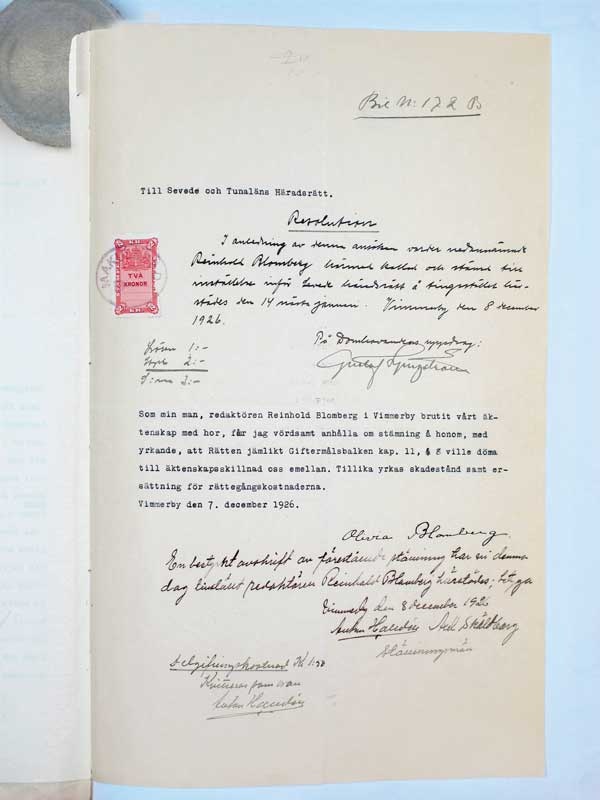 Bil N: 172 B
Till Sevede och Tunaläns Häradsrätt.
Resolution
I anledning av denna ansökan varder nedannämnde
Reinhold Blomberg härmed kallad och stämd till
inställelse inför Sevede häradsrätt å tingsstället här-
städes den 14 nästa januari. Vimmerby den 8 december
1926.
TVÅ
KRONOR
Lösen 1:-
Stpl 2:-
S:ma 3:-
På Domhavandens uppdrag:
Gustaf
Som min man, redaktören Reinhold Blomberg i Vimmerby brutit vårt äk-
tenskap med hor, får jag vördsamt anhålla om stämning å honom, med
yrkande, att Rätten jämlikt Giftermålsbalken kap. 11, § 8 ville döma
till äktenskapsskillnad oss emellan. Tillika yrkas skadestånd samt er-
sättning för rättegångskostnaderna.
Vimmerby den 7. december 1926.
Olivia Blomberg.
En bestyrkt avskrift av förestående stämning har vi denna
dag tillställt redaktören Reinhold Blomberg härstädes, betyga
Vimmerby den 8 december 1926
Anton Axel Sköldberg
Stämningsmän
Delgifningskostnad Kr 1:50
Kvitteras som ovan
Anton